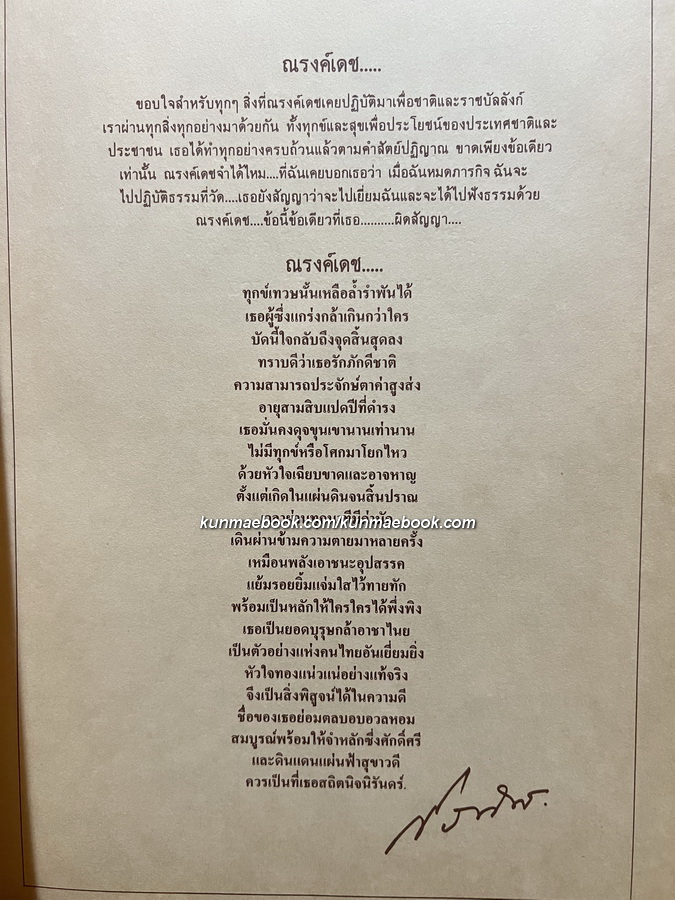 ณรงค์เดช.....
ขอบใจสำหรับทุกๆ สิ่งที่ณรงค์เดชเคยปฏิบัติมาเพื่อชาติและราชบัลลังก์
เราผ่านทุกสิ่งทุกอย่างมาด้วยกัน ทั้งทุกข์และสุขเพื่อประโยชน์ของประเทศชาติและ
ประชาชน เธอได้ทำทุกอย่างครบถ้วนแล้วตามคำสัตย์ปฏิญาณ ขาดเพียงข้อเดียว
เท่านั้น ณรงค์เดชจำได้ไหม....ที่ฉันเคยบอกเธอว่า เมื่อฉันหมดภารกิจ ฉันจะ
ไปปฏิบัติธรรมที่วัด....เธอยังสัญญาว่าจะไปเยี่ยมฉันและจะได้ไปฟังธรรมด้วย
ณรงค์เดช....ข้อนี้ข้อเดียวที่เธอ..........ผิดสัญญา....
ณรงค์เดช.....
ทุกข์เทวษนั้นเหลือล้ำรำพันได้
เธอผู้ซึ่งแกร่งกล้าเกินกว่าใคร
บัดนี้ใจกลับถึงจุดสิ้นสุดลง
ทราบดีว่าเธอรักภักดีชาติ
ความสามารถประจักษ์ตาค่าสูงส่ง
อายุสามสิบแปดปีที่ดำรง
เธอมั่นคงดุจขุนเขานานเท่านาน
ไม่มีทุกข์หรือโศกมาโยกไหว
ด้วยหัวใจเฉียบขาดและอาจหาญ
ตั้งแต่เกิดในแผ่นดินจนสิ้นปราณ
kunmaebook.com/kunmaebook.com
เดินผ่านข้ามความตายมาหลายครั้ง
เหมือนพลังเอาชนะอุปสรรค
แย้มรอยยิ้มแจ่มใสไว้ทายทัก
พร้อมเป็นหลักให้ใครใครได้พึ่งพิง
เธอเป็นยอดบุรุษกล้าอาชาไนย
เป็นตัวอย่างแห่งคนไทยอันเยี่ยมยิ่ง
หัวใจทองแน่วแน่อย่างแท้จริง
จึงเป็นสิ่งพิสูจน์ได้ในความดี
ชื่อของเธอย่อมตลบอบอวลหอม
สมบูรณ์พร้อมให้จำหลักซึ่งศักดิ์ศรี
และดินแดนแผ่นฟ้าสุขาวดี
ควรเป็นที่เธอสถิตนิจนิรันดร์.